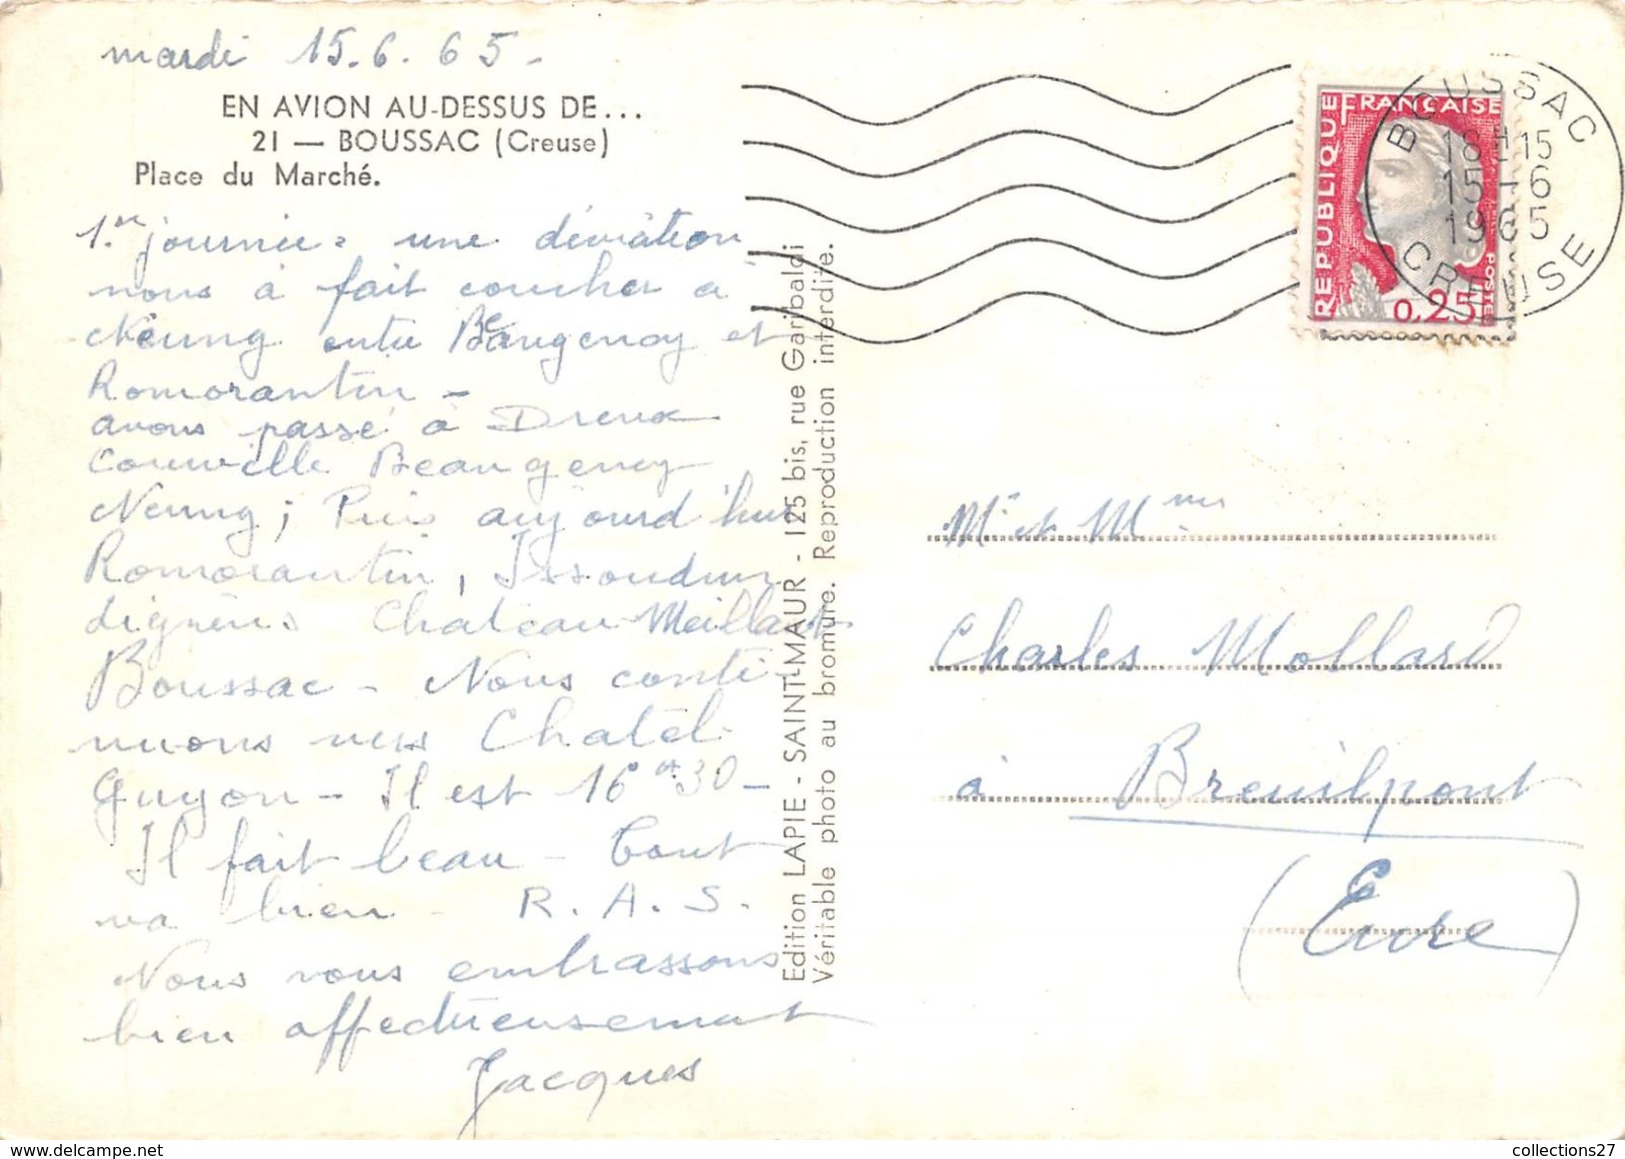 mardi 15.6.65-
EN AVION AU-DESSUS DE...
21 — BOUSSAC (Creuse)
Place du Marché.
journée: une déviation
nous à fait coucher à
Neung entre Beaugency et
Romorantin -
avons passé à Dreux
Beaugency
Neung; Puis aujourd'hui
Romorantin, Issoudun
Lignères. Chateau-Meillant
Boussac - Nous conti
nuons vers Chatel
Guyon - Il est 16H30 -
Il fait beau - Tout
va bien - R.A.S.
Nous vous embrassons
bien affectueusement
Jacques
Edition LAPIE - SAINT-MAUR - 125 bis, rue Garibaldi
Véritable photo au bromure. Reproduction interdite.
REPUBLIQUE FRANÇAISE
0,25
POSTES
BOUSSAC
18H15
15-6
1965
CREUSE
Mr et Mme
Charles Mollard
à Breuilpont
(Eure)
collections27